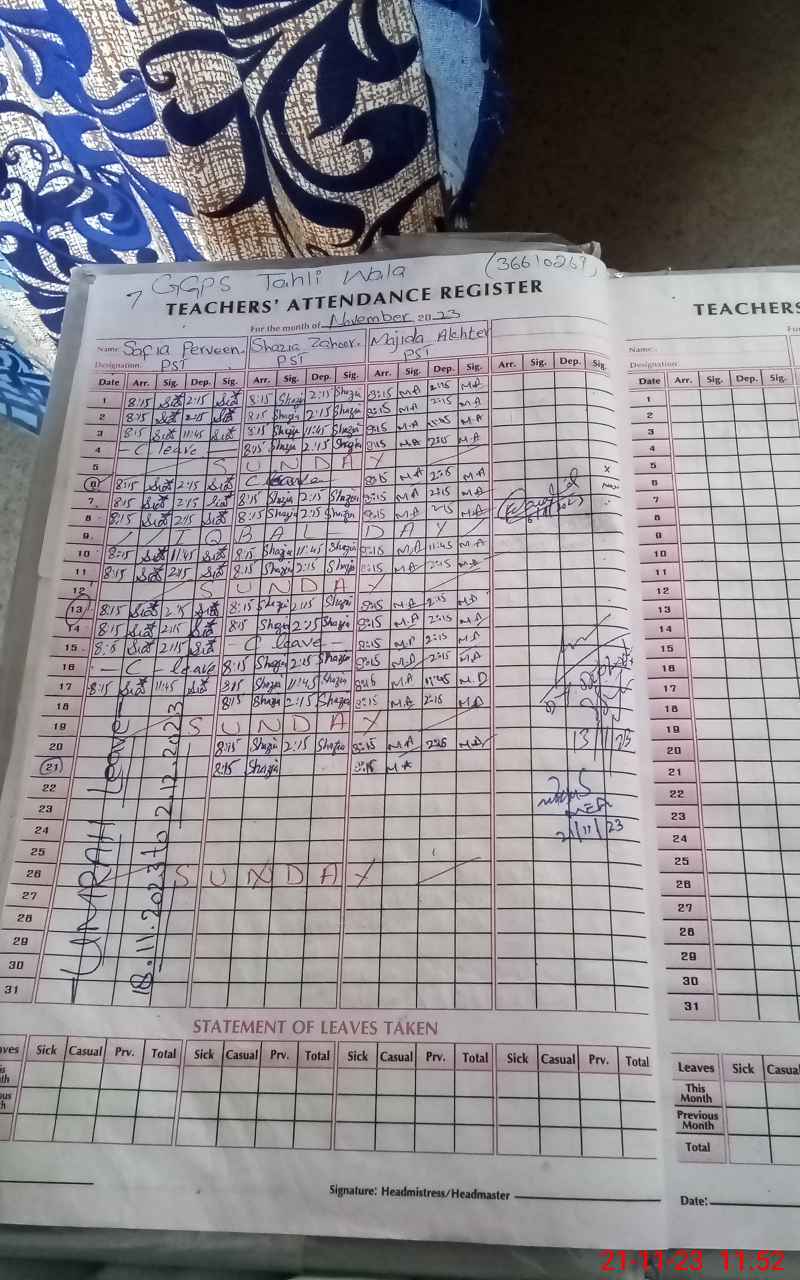 GGPS Tahli Wala (36610269)
TEACHERS' ATTENDANCE REGISTER
For the month of November 2023
Name: Safia Perveen. Shazia Zahoor. Majida Akhter
Designation: PST PST PST
Date Arr. Sig. Dep. Sig. Arr. Sig. Dep. Sig. Arr. Sig. Dep. Sig. Arr. Sig. Dep. Sig.
1 8:15 2:15 8:15 Shazia 2:15 Shazia 8:15 M.A 2:15 M.A
2 8:15 2:15 8:15 Shazia 2:15 Shazia 8:15 M.A 2:15 M.A
3 8:15 11:45 8:15 Shazia 11:45 Shazia 8:15 M.A 11:45 M.A
4 - C leave - 8:15 Shazia 2:15 Shazia 8:15 M.A 2:15 M.A
5 SUNDAY
6 8:15 2:15 C leave - 8:15 M.A 2:15 M.A
7 8:15 2:15 8:15 Shazia 2:15 Shazia 8:15 M.A 2:15 M.A
8 8:15 2:15 8:15 Shazia 2:15 Shazia 8:15 M.A 2:15 M.A
9 IQBAL DAY
10 8:15 11:45 8:15 Shazia 11:45 Shazia 8:15 M.A 11:45 M.A
11 8:15 2:15 8:15 Shazia 2:15 Shazia 8:15 M.A 2:15 M.A
12 SUNDAY
13 8:15 2:15 8:15 Shazia 2:15 Shazia 8:15 M.A 2:15 M.A
14 8:15 2:15 8:15 Shazia 2:15 Shazia 8:15 M.A 2:15 M.A
15 8:15 2:15 - C leave - 8:15 M.A 2:15 M.A
16 - C - leave 8:15 Shazia 2:15 Shazia 8:15 M.A 2:15 M.A
17 8:15 11:45 8:15 Shazia 11:45 Shazia 8:15 M.A 11:45 M.A
18 8:15 Shazia 2:15 Shazia 8:15 M.A 2:15 M.A
19 SUNDAY
20 8:15 Shazia 2:15 Shazia 8:15 M.A 2:15 M.A
21 8:15 Shazia 8:15 M.A
22
23
24
25
26 SUNDAY
27
28
29
30
31
UMRAH Leave
18.11.2023 to 2.12.2023
21/11/23
STATEMENT OF LEAVES TAKEN
Sick Casual Prv. Total Sick Casual Prv. Total Sick Casual Prv. Total Sick Casual Prv. Total
Signature: Headmistress/Headmaster
TEACHERS
Name:
Designation:
Date Arr. Sig. Dep. Sig.
1
2
3
4
5
6
7
8
9
10
11
12
13
14
15
16
17
18
19
20
21
22
23
24
25
26
27
28
29
30
31
Leaves Sick Casual
This Month
Previous Month
Total
Date:
21-11-23 11:52